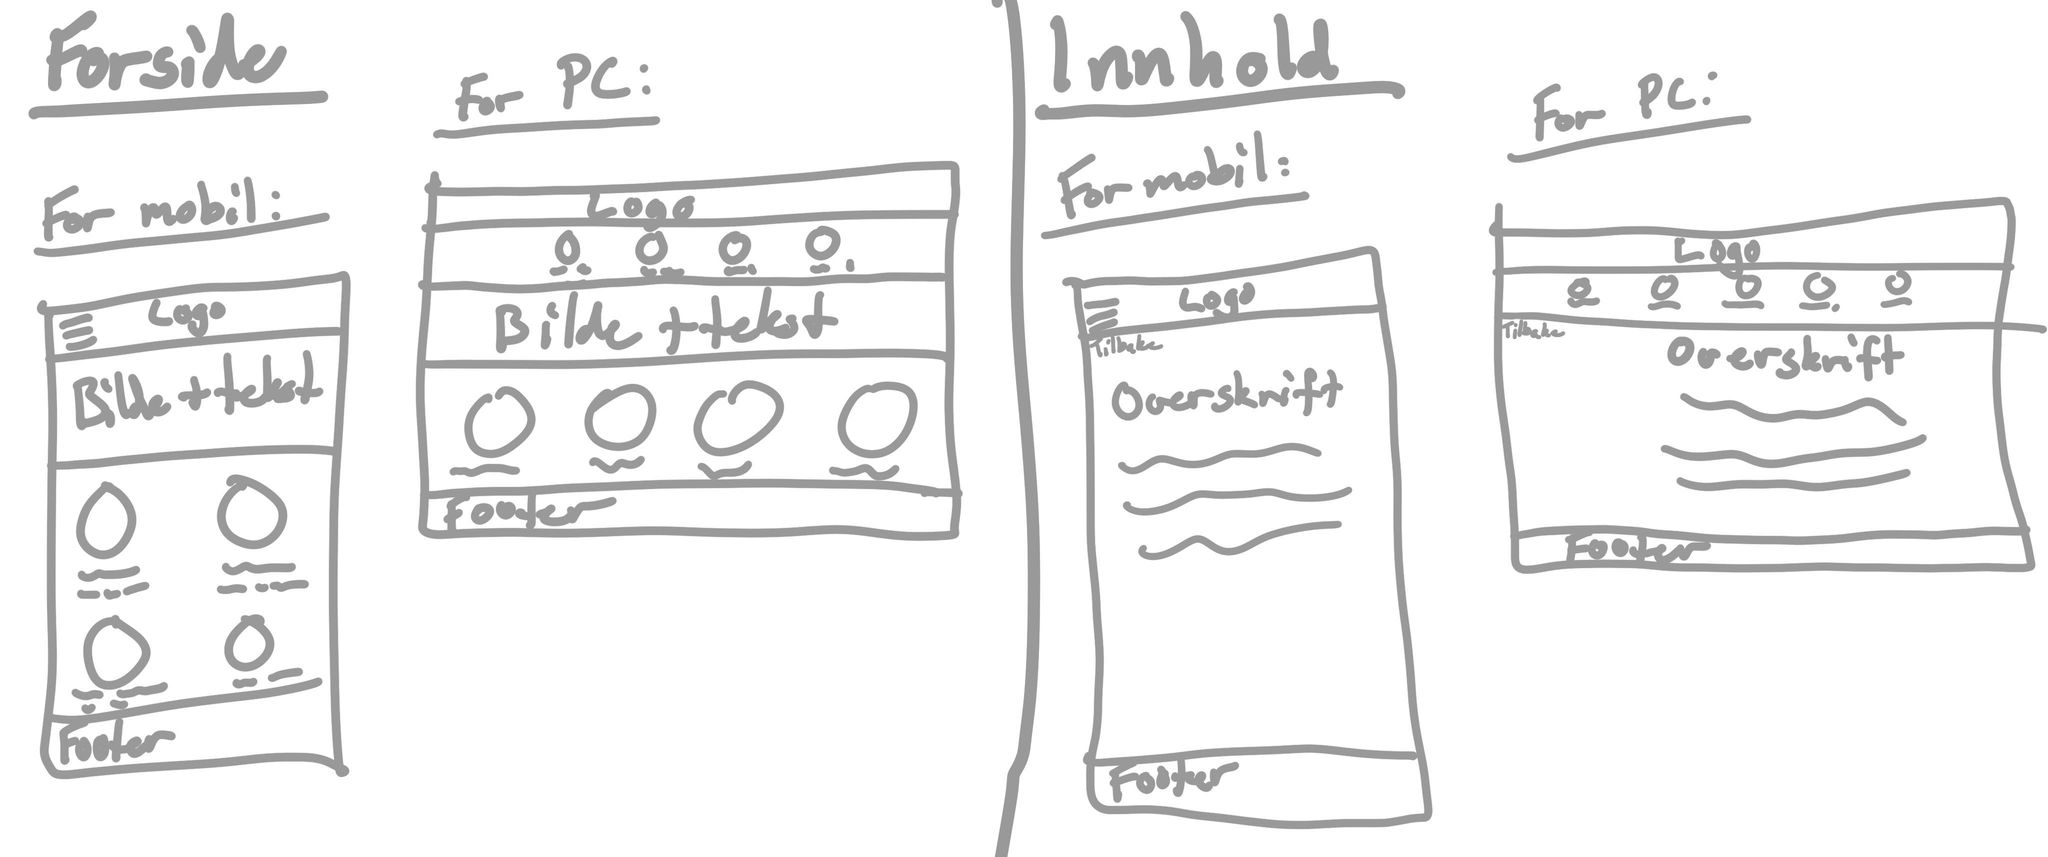 Forside
For mobil:
Logo
Bilde + tekst
Footer
For PC:
Logo
Bilde + tekst
Footer
Innhold
For mobil:
Logo
Tilbake
Overskrift
Footer
For PC:
Logo
Tilbake
Overskrift
Footer